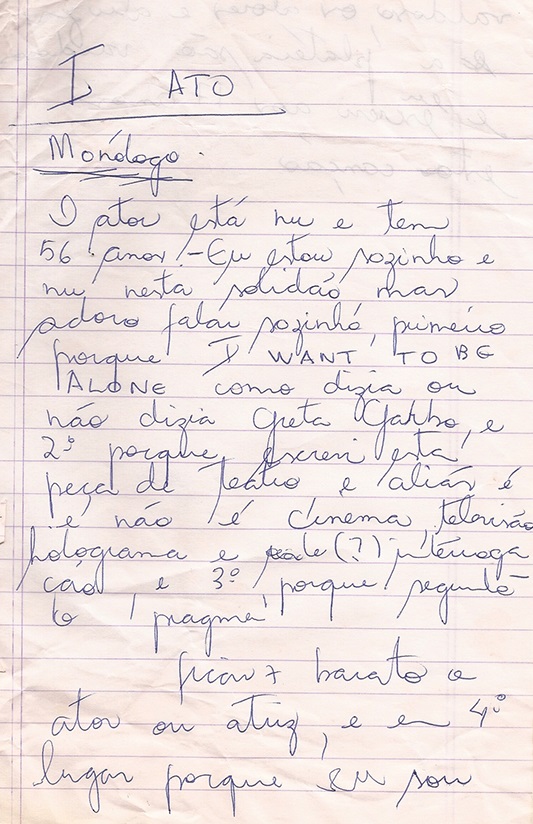 I ATO
Monólogo.
O ator está nu e tem
56 anos! - Eu estou sozinho e
nu nesta solidão mas
adoro falar sozinho, primeiro
porque I WANT TO BE
ALONE como dizia ou
não dizia Greta Garbo, e
2º porque escrevi esta
peça de Teatro e aliás é
e não é cinema, televisão
holograma e (?) interroga
ção e 3º porque segundo
o pragma
ficar + barato o
ator ou atriz, e em 4º
lugar porque eu sou